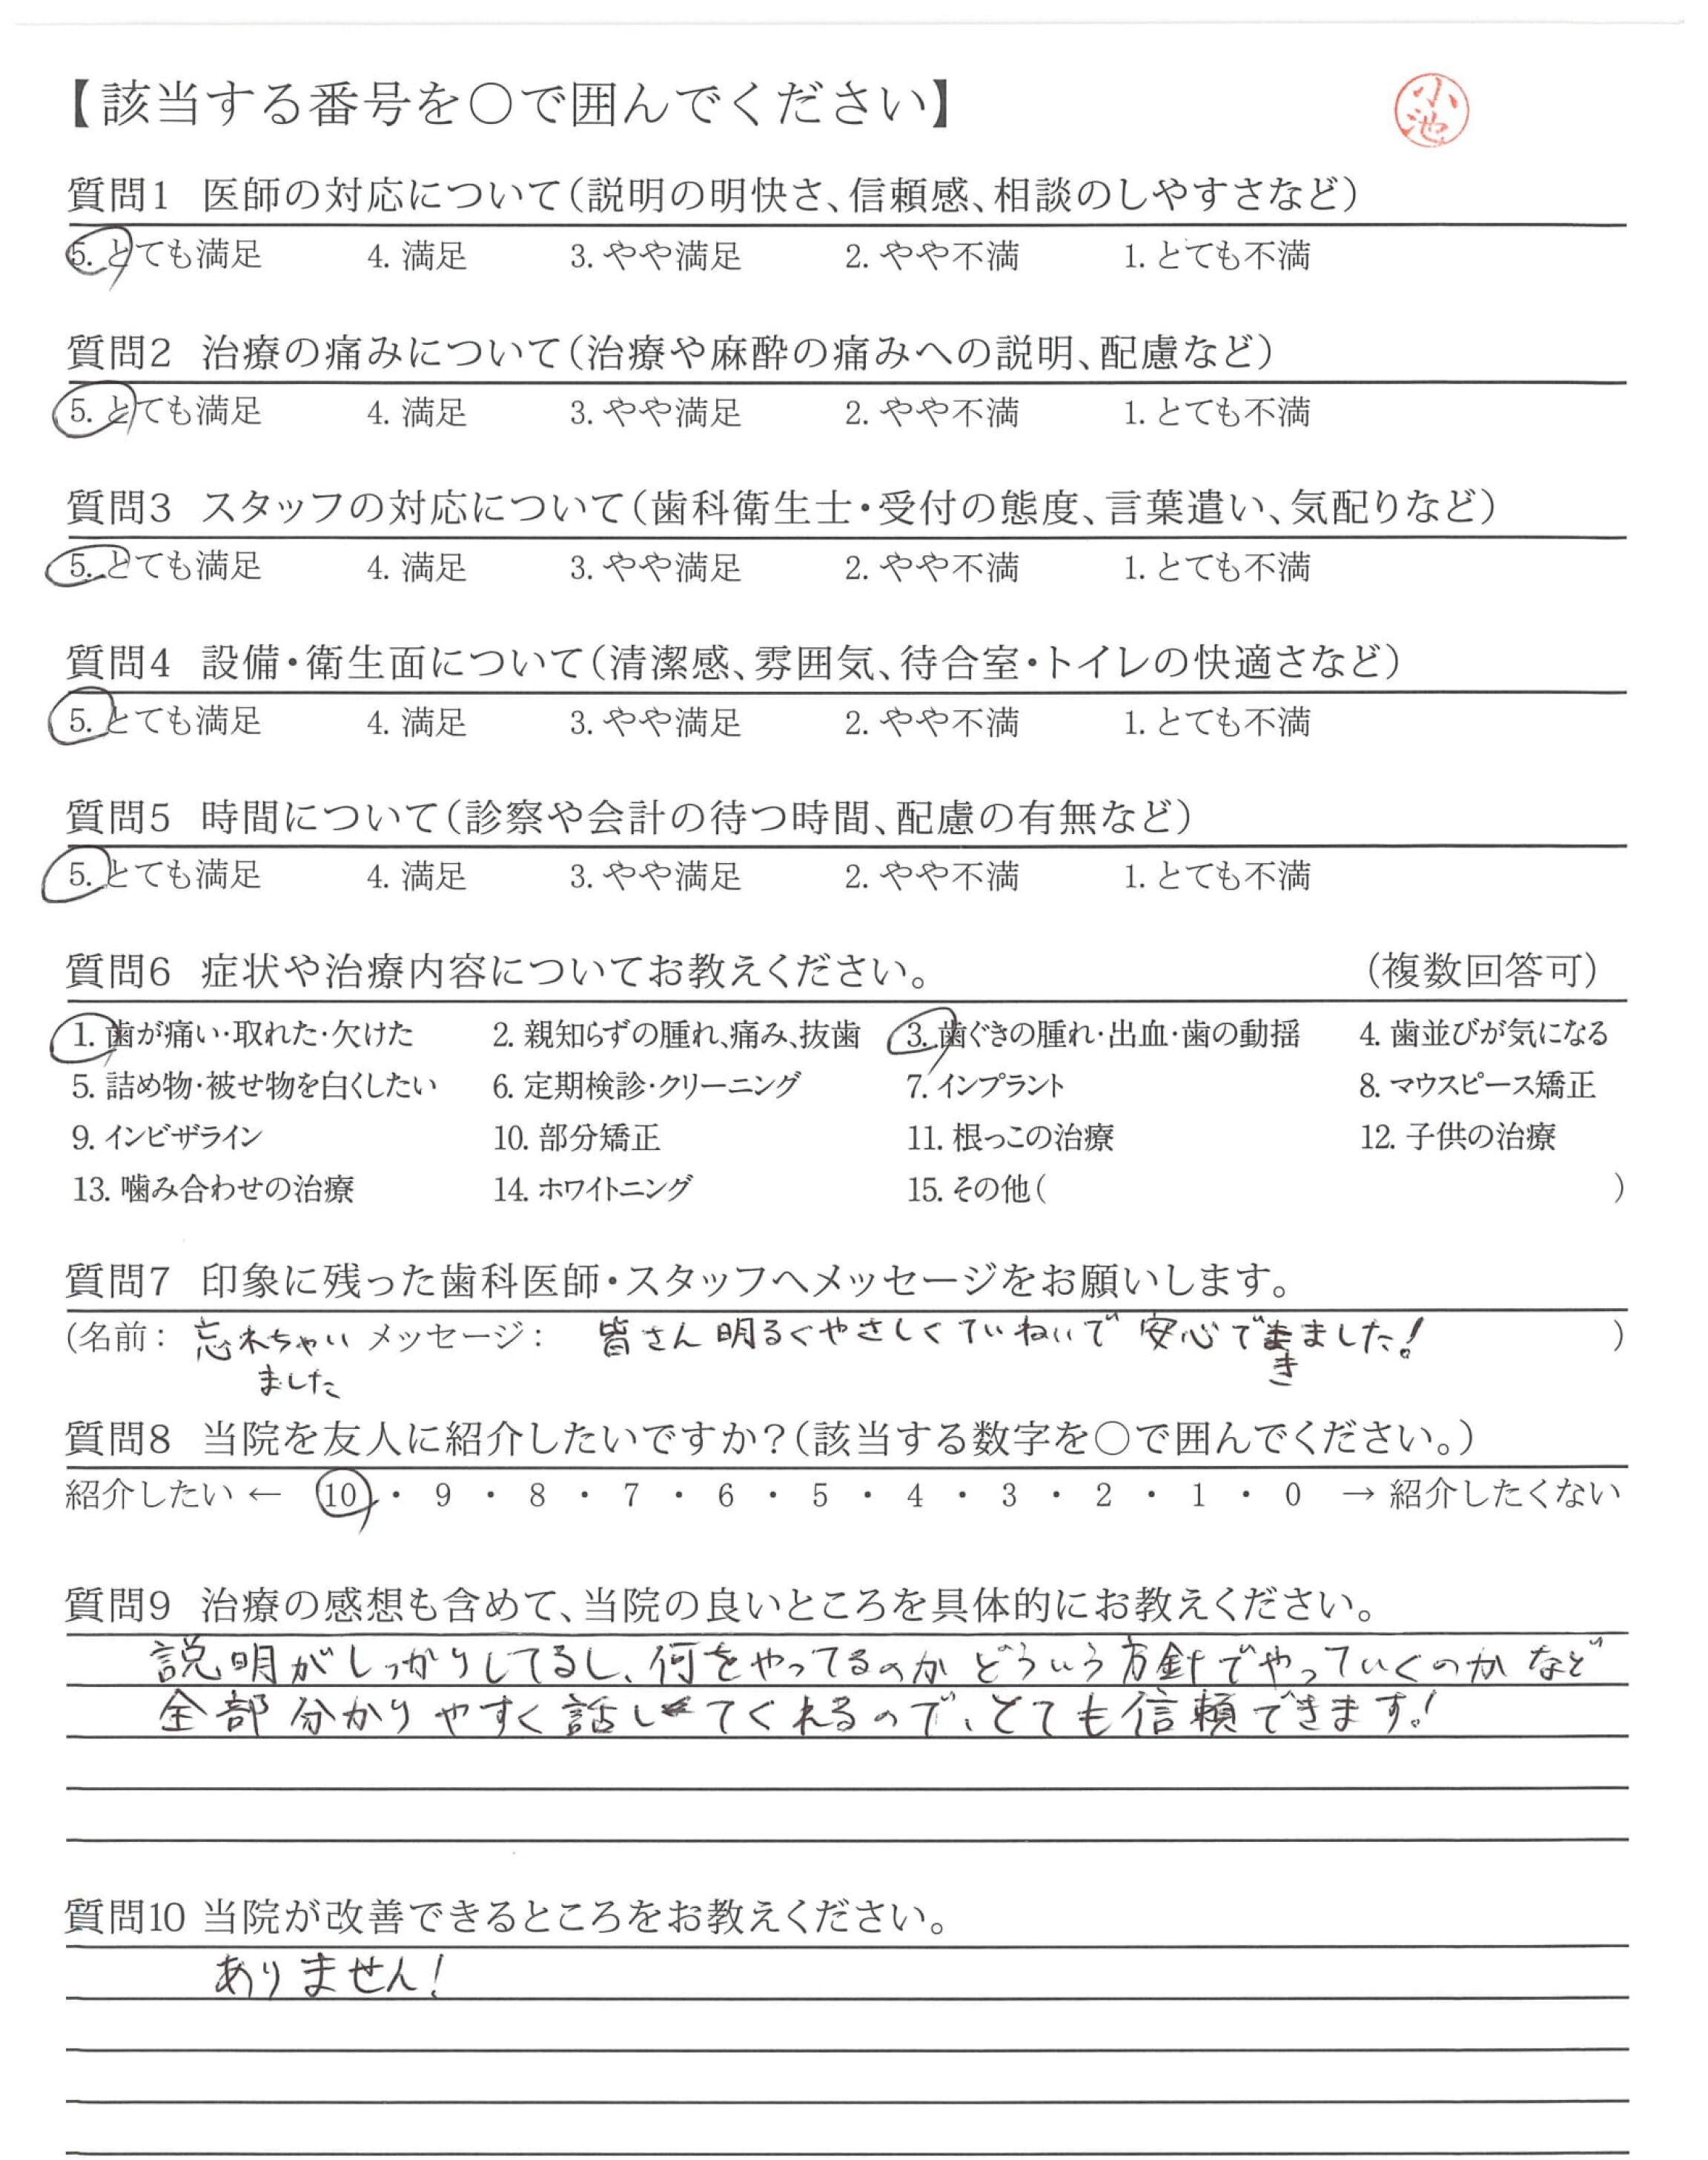 【該当する番号を○で囲んでください】
小池
質問1 医師の対応について(説明の明快さ、信頼感、相談のしやすさなど)
5. とても満足 4. 満足 3. やや満足 2. やや不満 1. とても不満
質問2 治療の痛みについて(治療や麻酔の痛みへの説明、配慮など)
5. とても満足 4. 満足 3. やや満足 2. やや不満 1. とても不満
質問3 スタッフの対応について(歯科衛生士・受付の態度、言葉遣い、気配りなど)
5. とても満足 4. 満足 3. やや満足 2. やや不満 1. とても不満
質問4 設備・衛生面について(清潔感、雰囲気、待合室・トイレの快適さなど)
5. とても満足 4. 満足 3. やや満足 2. やや不満 1. とても不満
質問5 時間について(診察や会計の待つ時間、配慮の有無など)
5. とても満足 4. 満足 3. やや満足 2. やや不満 1. とても不満
質問6 症状や治療内容についてお教えください。 (複数回答可)
1. 歯が痛い・取れた・欠けた 2. 親知らずの腫れ、痛み、抜歯 3. 歯ぐきの腫れ・出血・歯の動揺 4. 歯並びが気になる
5. 詰め物・被せ物を白くしたい 6. 定期検診・クリーニング 7. インプラント 8. マウスピース矯正
9. インビザライン 10. 部分矯正 11. 根っこの治療 12. 子供の治療
13. 噛み合わせの治療 14. ホワイトニング 15. その他( )
質問7 印象に残った歯科医師・スタッフへメッセージをお願いします。
(名前: 忘れちゃい メッセージ: 皆さん明るくやさしくていねいで安心できました! )
ました
質問8 当院を友人に紹介したいですか?(該当する数字を○で囲んでください。)
紹介したい ← 10 ・ 9 ・ 8 ・ 7 ・ 6 ・ 5 ・ 4 ・ 3 ・ 2 ・ 1 ・ 0 → 紹介したくない
質問9 治療の感想も含めて、当院の良いところを具体的にお教えください。
説明がしっかりしてるし、何をやってるのかどういう方針でやっていくのかなど
全部分かりやすく話してくれるので、とても信頼できます!
質問10 当院が改善できるところをお教えください。
ありません!